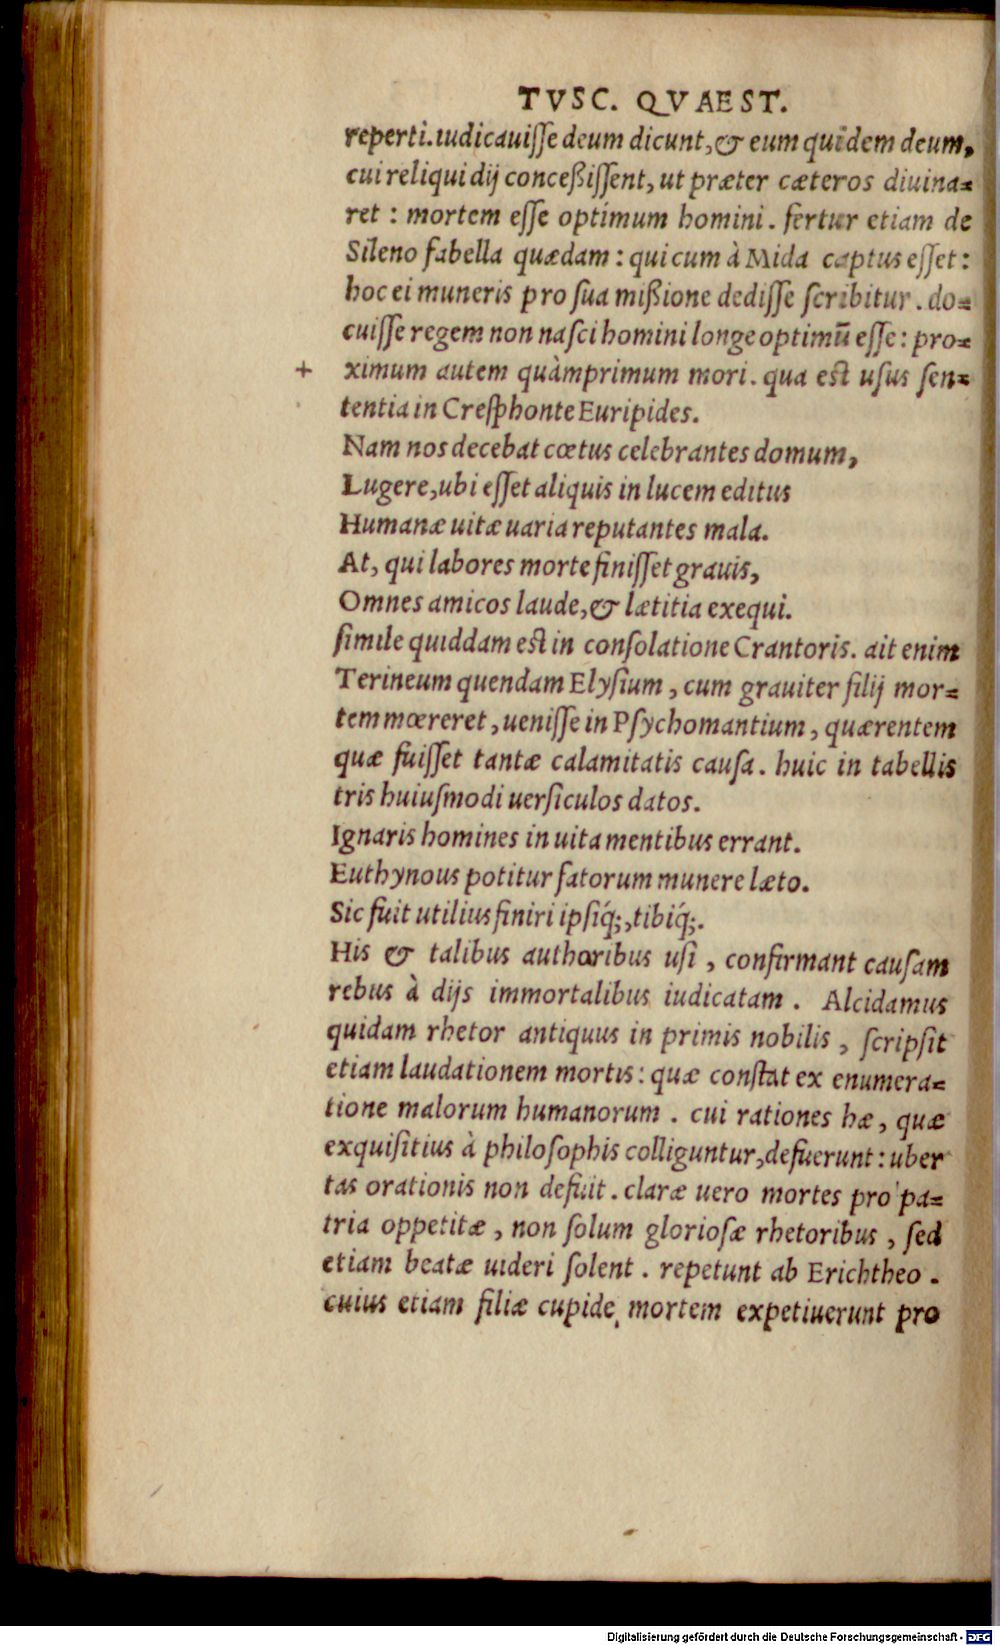 TVSC. QVAEST.
reperti. iudicauiſſe deum dicunt, & eum quidem deum,
cui reliqui dij conceßiſſent, ut præter cæteros diuina=
ret : mortem eſſe optimum homini . fertur etiam de
Sileno fabella quædam : qui cum à Mida captus eſſet :
hoc ei muneris pro ſua mißione dediſſe ſcribitur . do=
cuiſſe regem non naſci homini longe optimū eſſe : pro=
+ ximum autem quàmprimum mori . qua eſt uſus ſen=
tentia in Creſphonte Euripides.
Nam nos decebat cœtus celebrantes domum,
Lugere, ubi eſſet aliquis in lucem editus
Humanæ uitæ uaria reputantes mala.
At, qui labores morte finiſſet grauis,
Omnes amicos laude, & lætitia exequi.
ſimile quiddam eſt in conſolatione Crantoris. ait enim
Terineum quendam Elyſium , cum grauiter filij mor=
tem mœreret , ueniſſe in Pſychomantium , quærentem
quæ fuiſſet tantæ calamitatis cauſa . huic in tabellis
tris huiuſmodi uerſiculos datos.
Ignaris homines in uita mentibus errant.
Euthynous potitur fatorum munere læto.
Sic fuit utilius finiri ipſiq́;, tibiq́;.
His & talibus authoribus uſi , confirmant cauſam
rebus à dijs immortalibus iudicatam . Alcidamus
quidam rhetor antiquus in primis nobilis , ſcripſit
etiam laudationem mortis : quæ conſtat ex enumera=
tione malorum humanorum . cui rationes hæ , quæ
exquiſitius à philoſophis colliguntur, defuerunt : uber
tas orationis non defuit . claræ uero mortes pro pa=
tria oppetitæ , non ſolum glorioſæ rhetoribus , ſed
etiam beatæ uideri ſolent . repetunt ab Erichtheo .
cuius etiam filiæ cupide mortem expetiuerunt pro
Digitalisierung gefördert durch die Deutsche Forschungsgemeinschaft - DFG